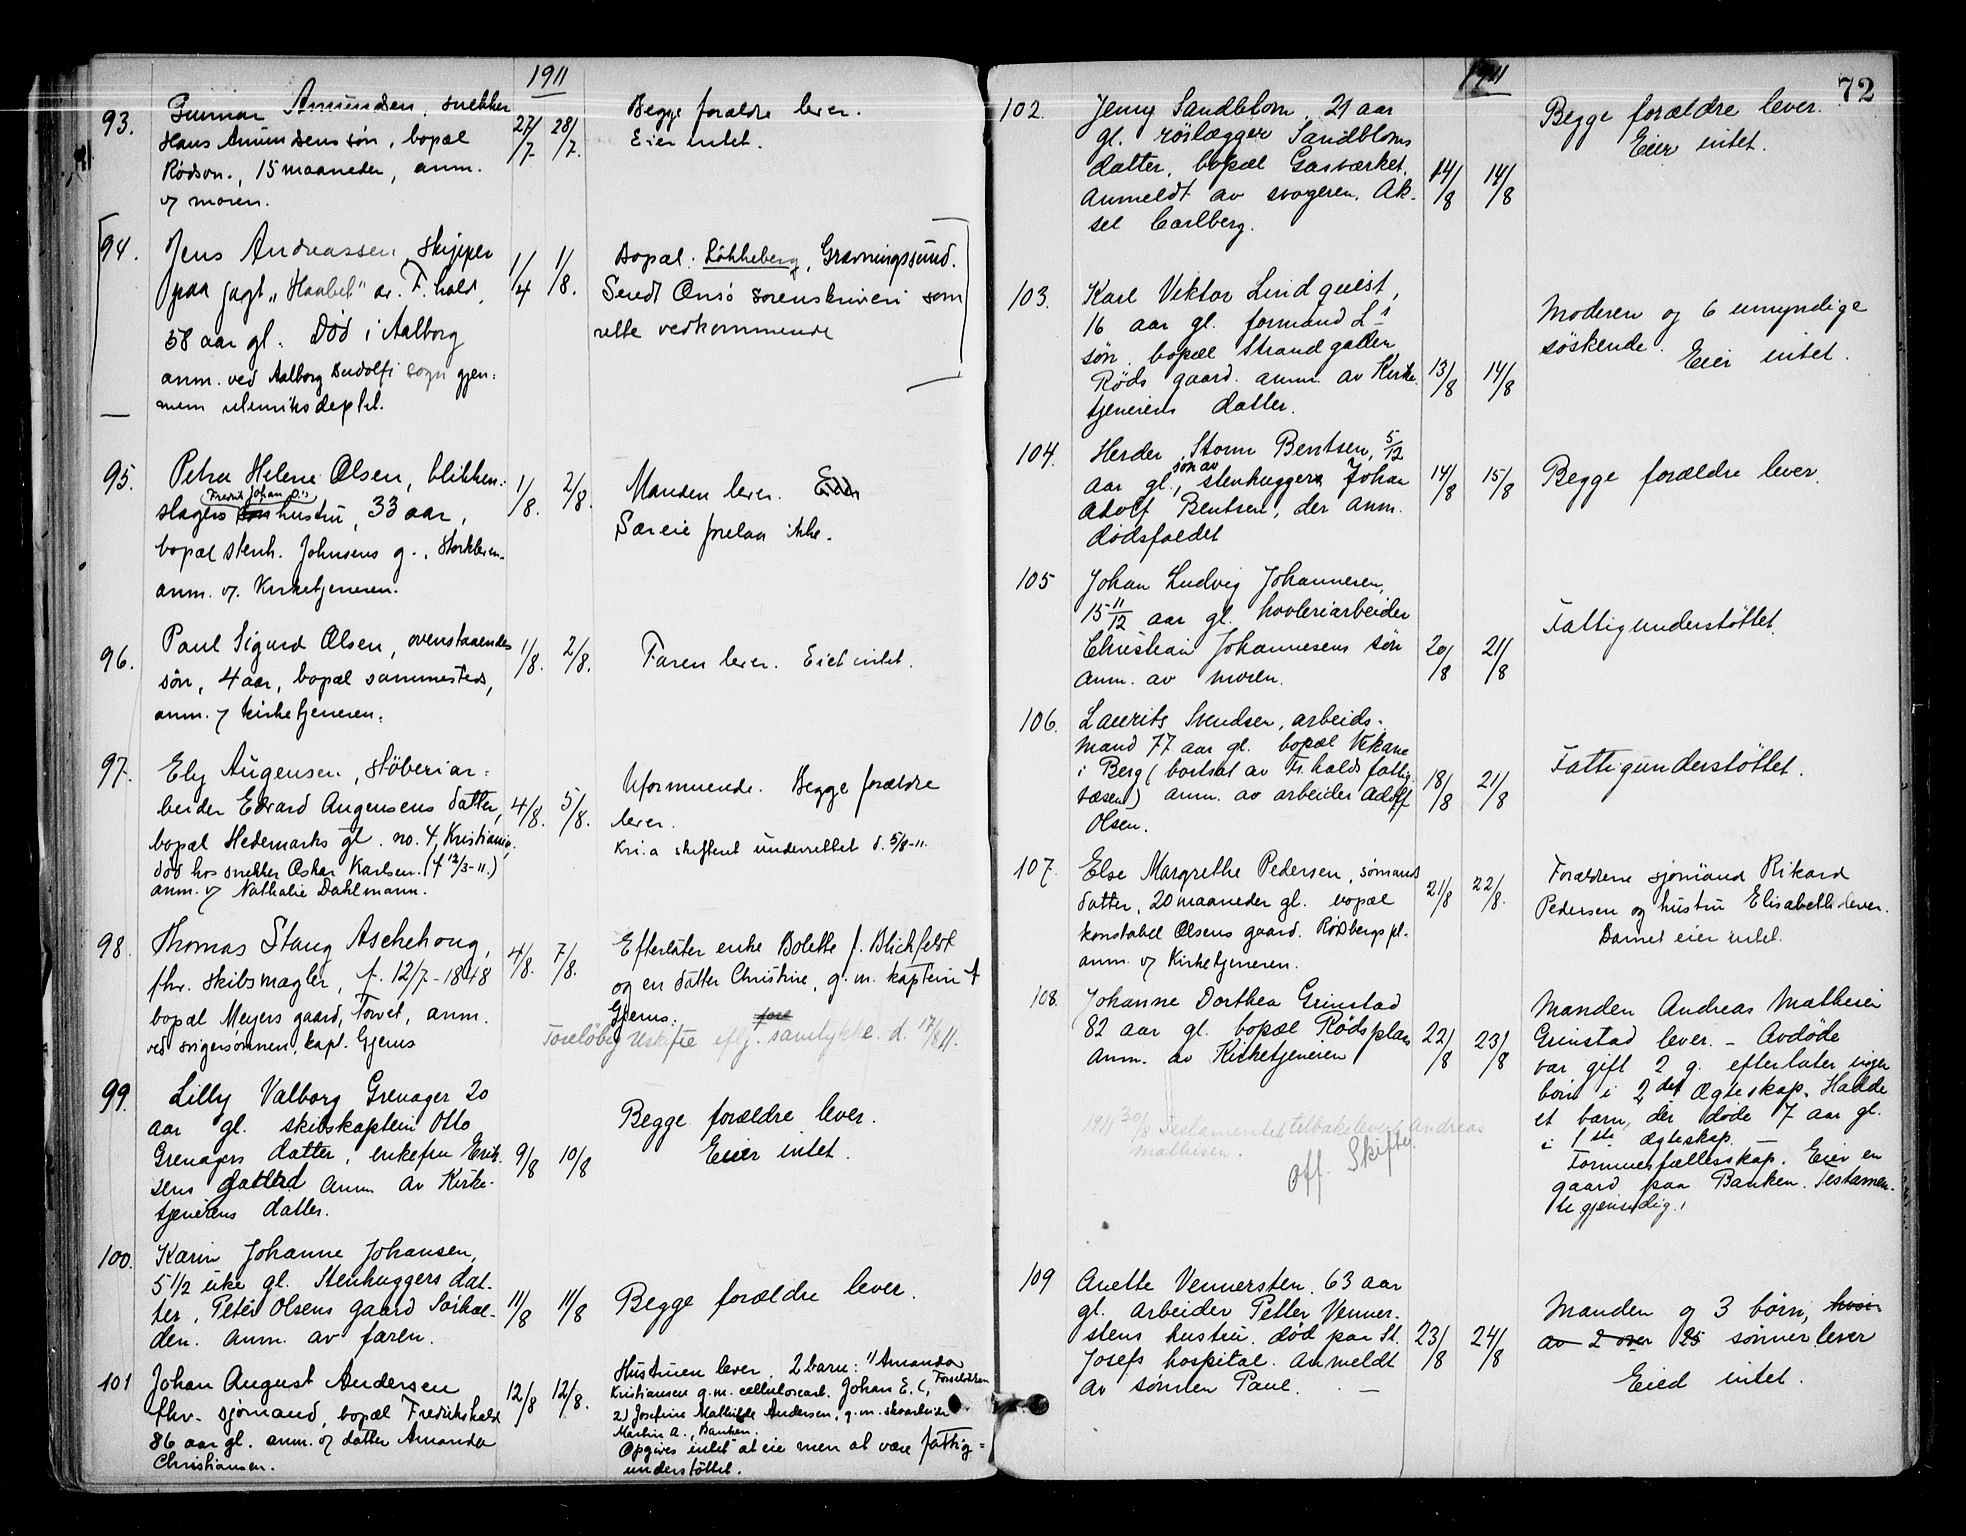 1911
93. Gunnar Amundsen, snekker
Hans Amundsens søn, bopæl
Rødson., 15 maaneder, anm.
v/ moren.
27/7 28/7.
Begge forældre lever.
Eier intet.
94. Jens Andreassen Skipper
paa jagt "Haabet" av F.hald,
58 aar gl. Død i Aalborg
anm. ved Aalborg Budolfi sogn gjen-
nem utenriksdeptet.
1/4 1/8.
Bopæl: Løkkeberg, Gravningssund.
Sendt Onsø sorenskriveri som
rette vedkommende
95. Petra Helene Olsen, blikken-
slager Fredrik Johan O.'s hustru, 33 aar,
bopæl stenh. Johnsens g.,
anm. v/. Kirketjeneren.
1/8. 2/8.
Manden lever. Eider
Særeie forelaa ikke.
96. Paul Sigurd Olsen, ovenstaaendes
søn, 4 aar, bopæl sammesteds,
anm. v/ kirketjeneren.
1/8. 2/8.
Faren lever. Eiet intet.
97. Ely Augensen, støberiar-
beider Edvard Augensens datter,
bopæl Hedemarks gt. no. 4, Kristiania,
død hos snekker Oskar Karlsen. (f 12/3-11.)
anm. v/ Nathalie Dahlmann.
4/8. 5/8.
Uformuende. Begge forældre
lever.
Kr.i.a skifteret underrettet d. 5/8-11.
98. Thomas Stang Aschehoug,
fhv. skibsmægler, f. 12/7-1848
bopæl Meyers gaard, Torvet, anm.
ved svigersønnen, kapt. Gjerus
4/8. 7/8.
Efterlater enke Bolette f. Blichfeldt
og en datter Christine, g. m. kaptein T
Gjerus.
Foreløbig Uskifte eflg. samtykke. d. 17/8 11.
99. Lilly Valborg Grenager 20
aar gl. skibskaptein Otto
Grenagers datter, enkefru Erik-
sens gaard anm av Kirke-
tjenerens datter.
9/8 10/8
Begge forældre lever.
Eier intet.
100. Karin Johanne Johansen,
5 1/2 uke gl. Stenhuggers dat-
ter, Peter Olsens gaard Sørhal-
den. Anm. av faren.
11/8 11/8
Begge forældre lever.
101 Johan August Andersen
fhv. sjømand, bopæl Fredrikshald
86 aar gl. anm. v/ datter Amanda
Christiansen.
12/8 12/8.
Hustruen lever, 2 barn: 1) Amanda
Kristiansen g.m. cellulosearb. Johan E. C,
2) Josefine Mathilde Andersen, g.m. skoarbeider
Martin A., Banken.
Opgives intet at eie men at være fattig-
understøttet.
1911 72
102. Jenny Sandblom, 21 aar
gl. rørlægger Sandbloms
datter, bopæl Gasværket.
Anmeldt av svogeren, Ak-
sel Carlberg.
14/8 14/8
Begge forældre lever.
Eier intet.
103. Karl Viktor Lindquist,
16 aar gl. formand L's
søn. bopæl Strandgaden
Røds gaard. anm. av Kirke-
tjenerens datter.
13/8 14/8
Moderen og 6 umyndige
søskende. Eier intet.
104. Herder Storm Bentsen, 5/12
aar gl., søn av stenhugger Johan
Adolf Bentsen, der anm.
dødsfaldet
14/8 15/8
Begge forældre lever.
105 Johan Ludvig Johannesen,
15 11/12 aar gl. høvleriarbeider
Christian Johannesens søn
anm. av moren.
20/8 21/8
Fattigunderstøttet.
106. Laurits Svendsen, arbeids-
mand 77 aar gl. bopæl Vikane
i Berg (bortsat av Fr.halds fattig-
væsen) anm. av arbeider Adolf
Olsen.
18/8 21/8
Fattigunderstøttet.
107. Else Margrethe Pedersen, sømands
datter, 20 maaneder gl. bopæl
konstabel Olsens gaard. Rødsbergs pl.
anm. v/ Kirketjeneren.
21/8 22/8.
Forældrene sjømand Rikard
Pedersen og hustru Elisabeth lever.
Barnet eier intet.
108. Johanne Dorthea Grinstad
82 aar gl. bopæl Rødsplas
anm. av Kirketjeneren
22/8 23/8
Manden Andreas Mathisen
Grinstad lever. - Avdøde
var gift 2 g. efterlater ingen
børn i 2det ægteskap. Hadde
et barn, der døde 7 aar gl.
i 1ste ægteskap.
Formuesfællesskap. Eier en
gaard paa Banken. Testamen-
te gjensidig.
1911 30/8 Testamentet tilbakelevert Andreas
Mathisen.
Off. Skifte.
109 Anette Vennersten, 63 aar
gl. arbeider Petter Venner-
stens hustru. død paa St.
Josefs hospital. Anmeldt
av sønnen Paul. —
23/8 24/8
Manden og 3 børn, hvor-
av 2 over 25 sønner lever
Eied intet.